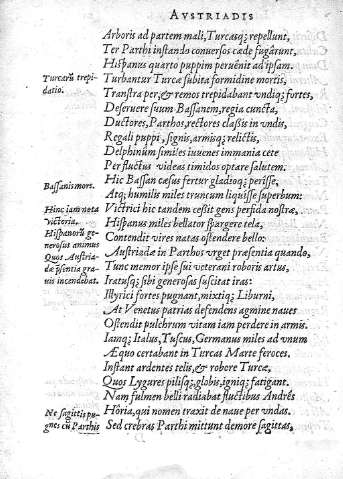 AVSTRIADIS
Arboris ad partem mali, Turcasq; repellunt,
Ter Parthi instando conuersos cæde fugârunt,
Hispanus quarto puppim peruênit ad ipsam.
Turcarũ trepi-
datio.
Turbantur Turcæ subita formidine mortis,
Transtra per, & remos trepidabant vndiq; fortes,
Deseruere suum Bassanem, regia cuncta,
Ductores, Parthos, rectores classis in vndis,
Regali puppi, signis, armisq; relictis,
Delphinum similes iuuenes immania cete
Per fluctus videas timidos optare salutem.
Bassanis mors.
Hic Bassan cæsus fertur gladioq; perisse,
Atq; humilis miles truncum liquisse superbum:
Hinc iam nota
victoria.
Victrici hic tandem cessit gens perfida nostræ,
Hispanorũ ge-
nerosus animus
Hispanus miles bellator spargere tela,
Contendit vires natas ostendere bello:
Quos Austria-
dæ p̃sentia gra-
uis incendebat.
Austriadæ in Parthos vrget præsentia quando,
Tunc memor ipse sui veterani roboris artus,
Iratusq; sibi generosas suscitat iras:
Illyrici fortes pugnant, mixtiq; Liburni,
At Venetus patrias defendens agmine naues
Ostendit pulchrum vitam iam perdere in armis.
Iamq; Italus, Tuscus, Germanus miles ad vnum
Æquo certabant in Turcas Marte feroces,
Instant ardentes telis, & robore Turcæ,
Quos Lygures pilisq;, globis, igniq; fatigant.
Nam fulmen belli radiabat fluctibus Andrês
Hôria, qui nomen traxit de naue per vndas.
Ne sagittis pu-
gnes cũ Parthis
Sed crebras Parthi mittunt demore sagittas,